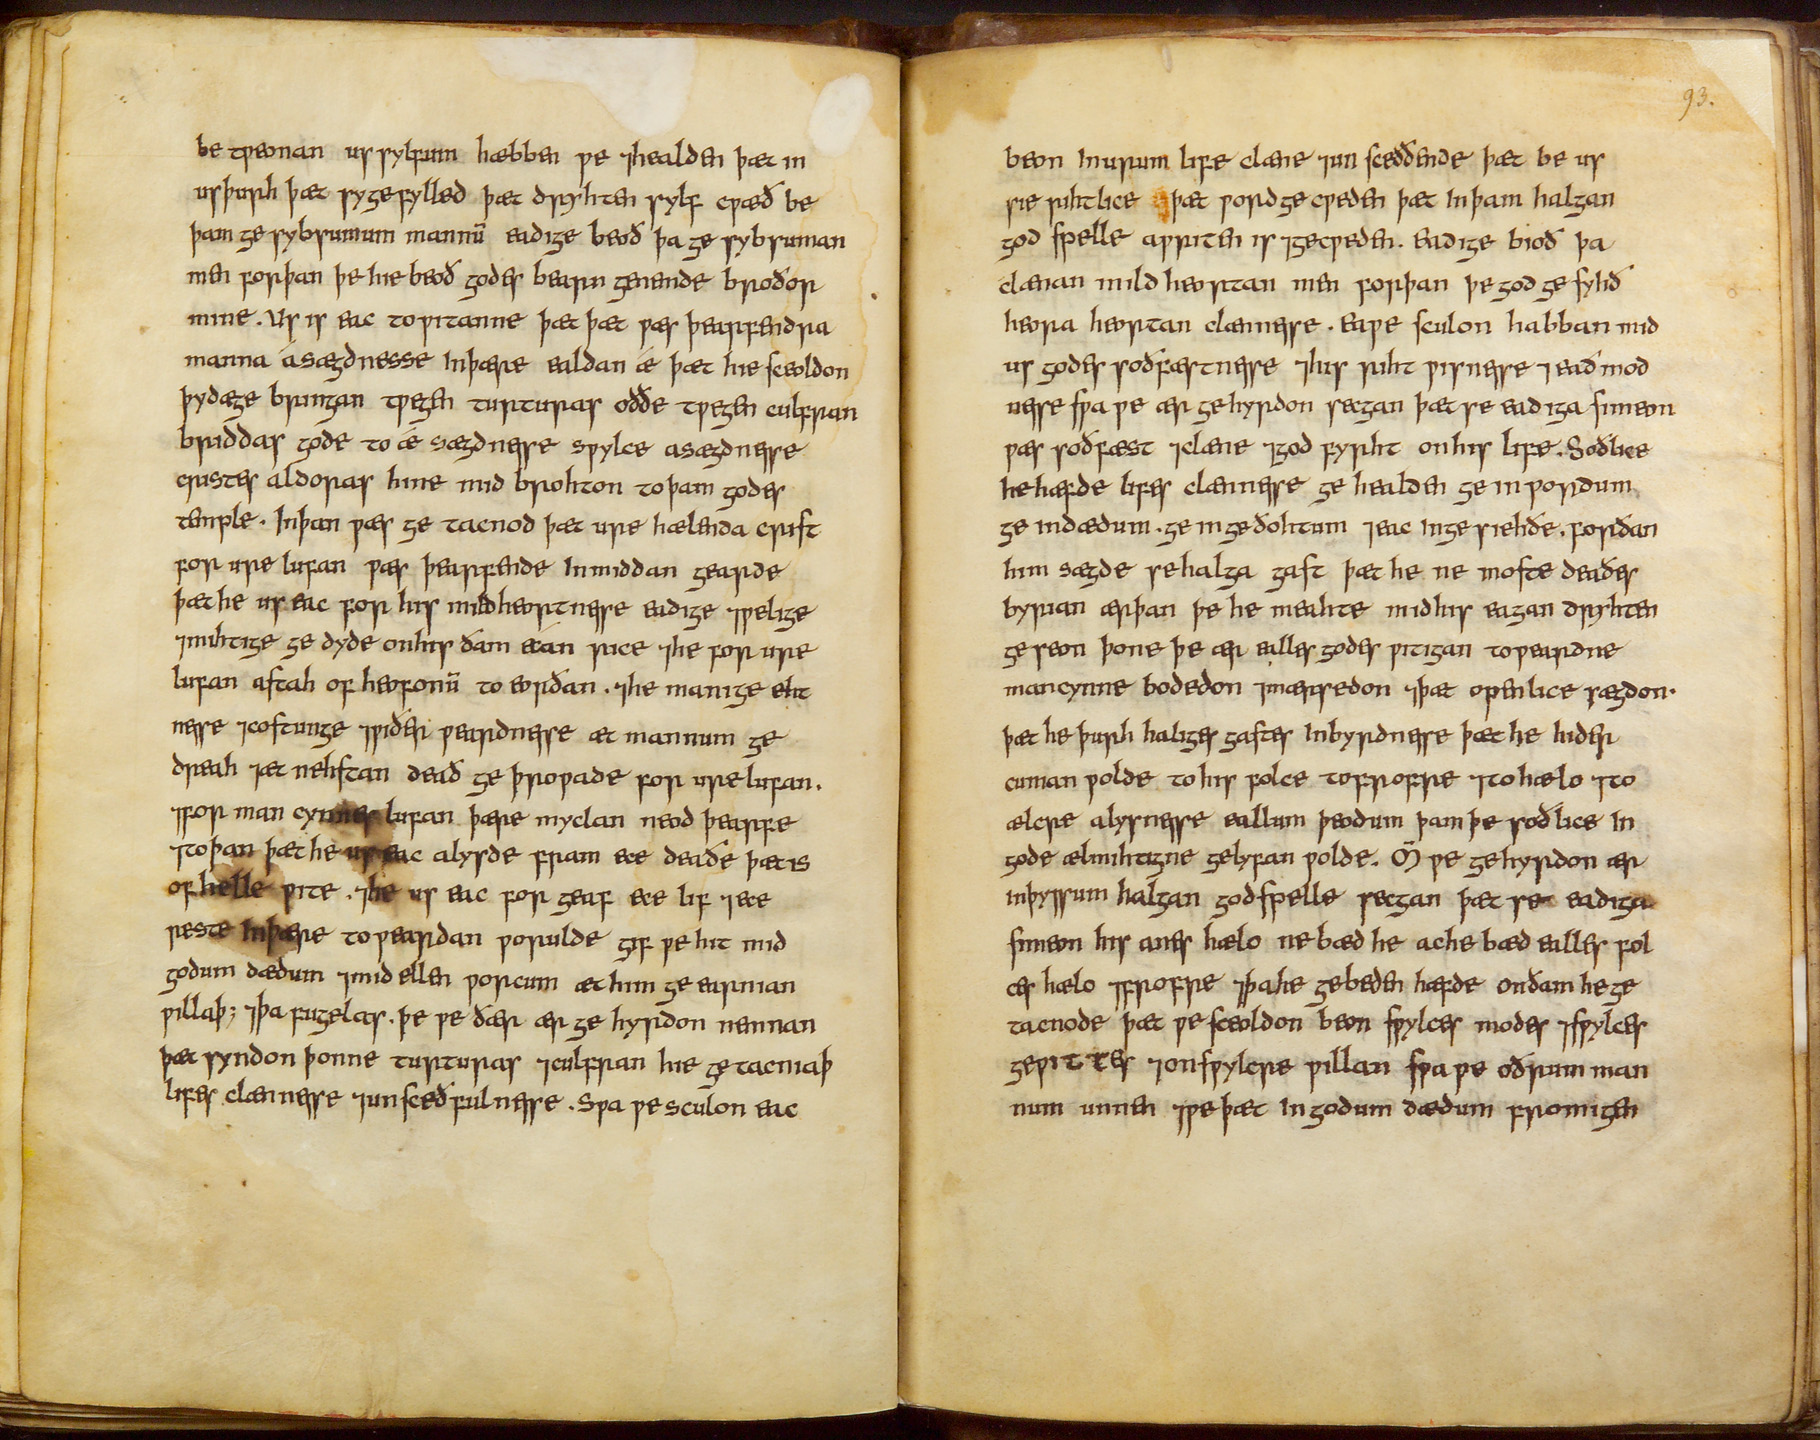 be tƿeonan us sylfum hæbben ƿe ⁊healden þæt in
us þurh þæt sy gefylled þæt dryhten sylf cƿæð be
þam gesybsumum mannū eadige beoð þa gesybsuman
men forþan þe hie beoð godes bearn genemde broðor
mine. Us is eac to ƿitanne þæt þæt ƿæs þearfendra
manna ásægdnesse in þære ealdan ǽ þæt hie sceoldon
þy dæge bringan tƿegen turturas oððe tƿegen culfran
briddas gode to ǽ sægdnesse sƿylce asægdnesse
cristes aldoras hine mid brohton to þam godes
temple. In þan ƿæs ge tacnod þæt ure hælenda crist
for ure lufan ƿæs þearfende in middan gearde
þæt he us eac for his mildheortnesse eadige ⁊ƿelige
⁊mihtige ge dyde on his ðam ecan rice ⁊he for ure
lufan astah of heofonū to eorðan. ⁊he manige eht
nesse ⁊costunge ⁊ƿiðer ƿeardnesse æt mannum ge
dreah ⁊æt nehstan deað ge þroƿade for ure lufan.
⁊for man cynnes lufan þære myclan neod þearfe
⁊to þan þæt he us eac alysde fram ece deaðe þæt is
of helle ƿite. ⁊he us eac for geaf ece lif ⁊ece
reste in þære to ƿeardan ƿorulde gif ƿe hit mid
godum dædum ⁊mid ellen ƿorcum æt him ge earnian
ƿillaþ; ⁊þa fugelas. þe ƿe ðær ær ge hyrdon nemnan
þæt syndon þonne turturas ⁊culfran hie ge tacniaþ
lifes clænnesse ⁊unsceðfulnesse. Sƿa ƿe sculon eac
93.
beon in urum life clæne ⁊un sceððende þæt be us
sie rihtlice þæt ƿord ge cƿeden þæt in þam halgan
god spelle aƿriten is ⁊gecƿeden. Eadige bioð þa
clænan mild heortan men forþan þe god ge syhð
heora heortan clænnesse. Ea ƿe sculon habban mid
us godes soðfæstnesse ⁊his riht ƿisnesse ⁊eað mod
nesse sƿa ƿe ær gehyrdon secgan þæt se eadiga simeon
ƿæs soðfæst ⁊clæne ⁊god fyrht on his life. Soðlice
he hæfde lifes clænnesse ge healden ge in ƿordum
ge in dædum. ge in geðohtum ⁊eac in ge siehðe. forðan
him sægde se halga gast þæt he ne moste deaðes
byrian ær þan þe he meahte mid his eagan dryhten
ge seon þone þe ær ealles godes ƿitigan toƿeardne
mancynne bodedon ⁊mærsedon ⁊þæt openlice sægdon.
þæt he þurh haliges gastes inbyrdnesse þæt he hider
cuman ƿolde to his folce to frofre ⁊to hælo ⁊to
ælcre alysnesse eallum þeodum þam þe soðlice in
gode ælmihtigne gelyfan ƿolde. M̄ ƿe gehyrdon ær
in þyssum halgan godspelle secgan þæt se eadiga
simeon his anes hælo ne bæd he ac he bæd ealles fol
ces hælo ⁊frofre ⁊þa he gebeden hæfde on ðam he ge
tacnode þæt ƿe sceoldon beon sƿylces modes ⁊sƿylces
geƿittes ⁊on sƿylcre ƿillan sƿa ƿe oðrum man
num unnen ⁊ƿe þæt in godum dædum fromigen